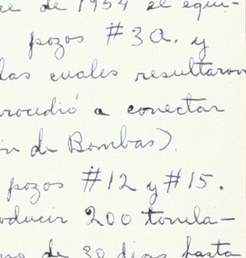 de 1954 el equi-
pozos #3A. y
las cuales resultaron
procedió a conectar
de Bombas).
pozos #12 y #15.
200 tonela-
de 30 días hasta